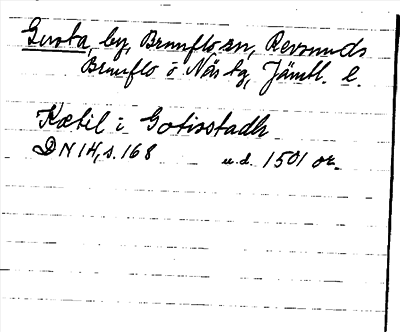 Gusta, by, Brunflo sn, Revsunds
Brunflo o Näs tg, Jämtl. l.
Kætil i Gotisstadh
DN 14, s. 168 u.d. 1501 or.